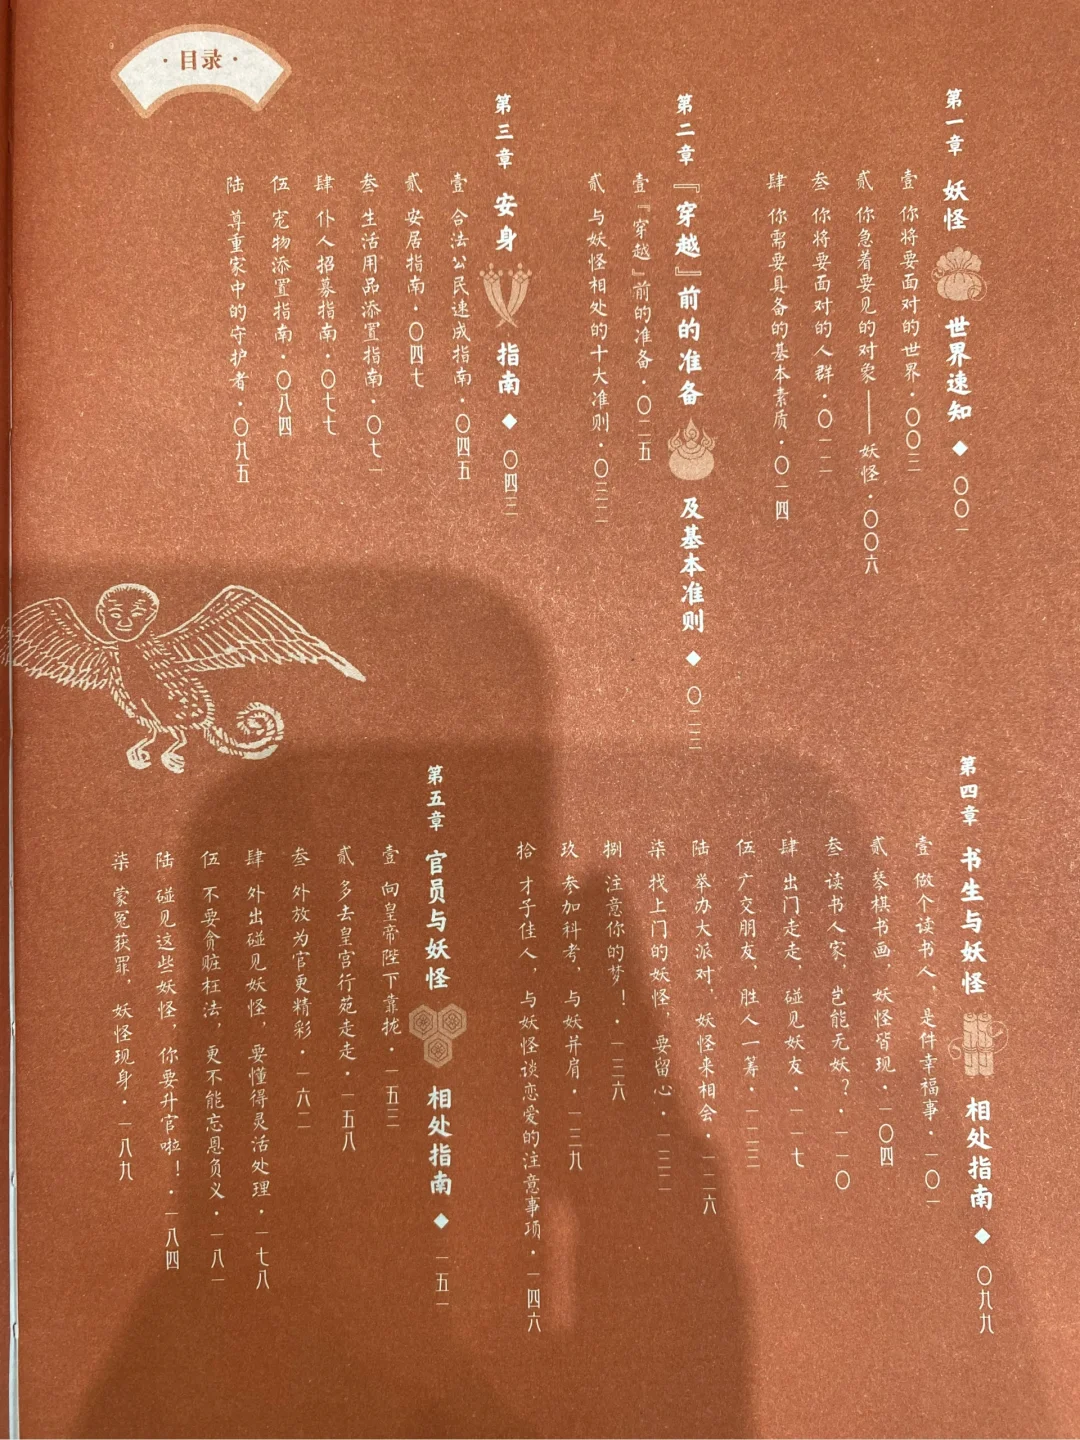 ·目录·
第一章 妖怪世界速知◆〇〇一
壹 你将要面对的世界·〇〇三
贰 你急着要见的对象——妖怪·〇〇六
叁 你将要面对的人群·〇一二
肆 你需要具备的基本素质·〇一四
第二章 『穿越』前的准备及基本准则◆〇二三
壹 『穿越』前的准备·〇二五
贰 与妖怪相处的十大准则·〇三二
第三章 安身指南◆〇四三
壹 合法公民速成指南·〇四五
贰 安居指南·〇四七
叁 生活用品添置指南·〇七一
肆 仆人招募指南·〇七七
伍 宠物添置指南·〇八四
陆 尊重家中的守护者·〇九五
第四章 书生与妖怪相处指南◆〇九九
壹 做个读书人，是件幸福事·一〇一
贰 琴棋书画，妖怪皆现·一〇四
叁 读书人家，岂能无妖？·一一〇
肆 出门走走，碰见妖友·一一七
伍 广交朋友，胜人一筹·一二三
陆 举办大派对，妖怪来相会·一二六
柒 找上门的妖怪，要留心·一三二
捌 注意你的梦！·一三六
玖 参加科考，与妖并肩·一三九
拾 才子佳人，与妖怪谈恋爱的注意事项·一四六
第五章 官员与妖怪相处指南◆一五一
壹 向皇帝陛下靠拢·一五三
贰 多去皇宫行苑走走·一五八
叁 外放为官更精彩·一六二
肆 外出碰见妖怪，要懂得灵活处理·一七八
伍 不要贪赃枉法，更不能忘恩负义·一八一
陆 碰见这些妖怪，你要升官啦！·一八四
柒 蒙冤获罪，妖怪现身·一八九